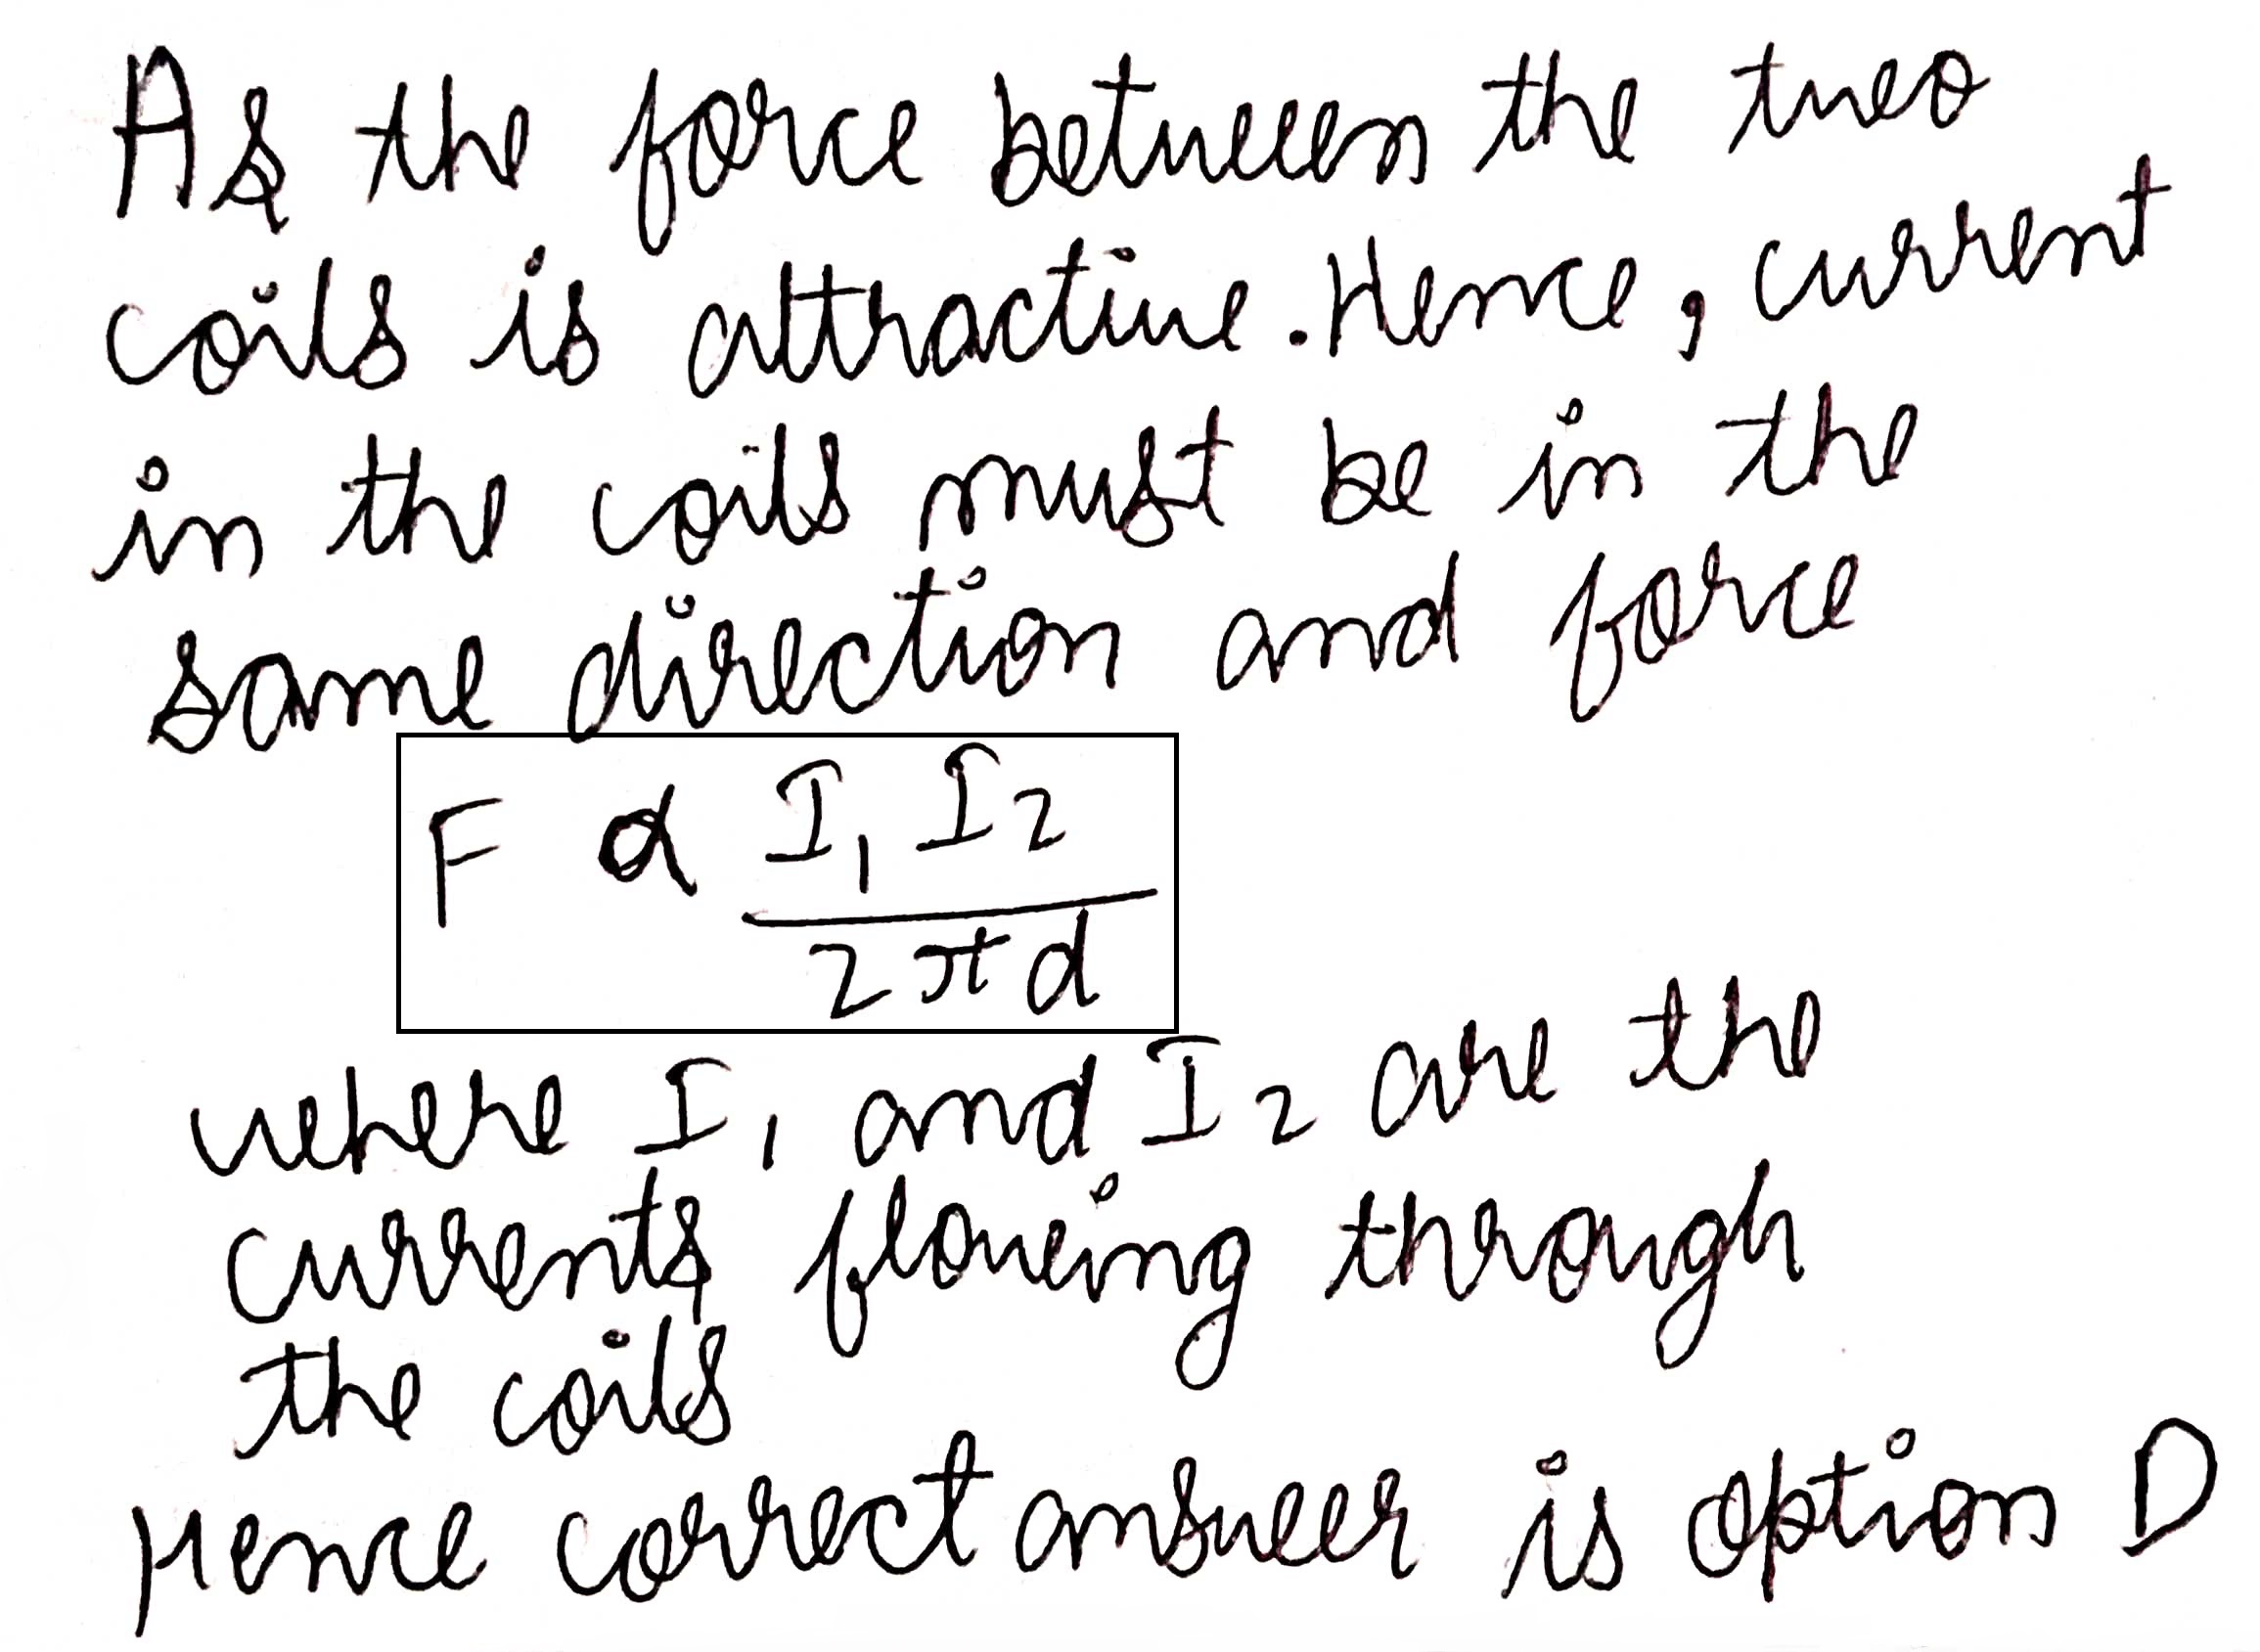 As the force between the two
coils is attractive. Hence, current
in the coils must be in the
same direction and force
F ∝ I₁ I₂ / 2πd
where I₁ and I₂ are the
currents flowing through
the coils
Hence correct answer is option D